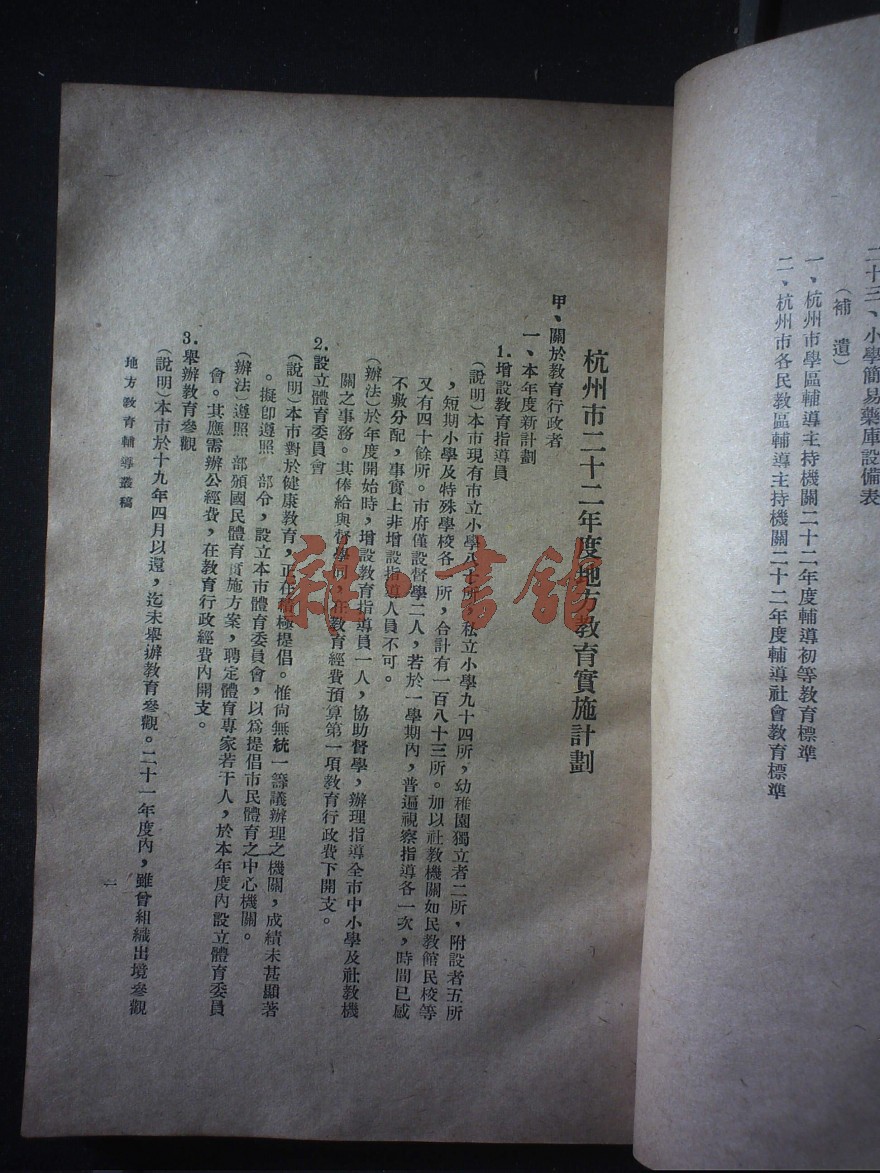 二十三、小學簡易藥庫設備表
（補遺）
一、杭州市學區輔導主持機關二十二年度輔導初等教育標準
二、杭州市各民教區輔導主持機關二十二年度輔導社會教育標準
杭州市二十二年度地方教育實施計劃
甲、關於教育行政者
一、本年度新計劃
1.增設教育指導員
（說明）本市現有市立小學八十所，私立小學九十四所，幼稚園獨立者二所，附設者五所
，短期小學及特殊學校各一所，合計有一百八十三所。加以社教機關如民教館民校等
又有四十餘所。市府僅設督學二人，若於一學期內，普遍視察指導各一次，時間已感
不敷分配，事實上非增設指導人員不可。
（辦法）於年度開始時，增設教育指導員一人，協助督學，辦理指導全市中小學及社教機
關之事務。其俸給與督學同，在教育經費預算第一項教育行政費下開支。
2.設立體育委員會
（說明）本市對於健康教育，正在積極提倡。惟尚無統一籌議辦理之機關，成績未甚顯著
。擬即遵照　部令，設立本市體育委員會，以為提倡市民體育之中心機關。
（辦法）遵照　部頒國民體育實施方案，聘定體育專家若干人，於本年度內設立體育委員
會。其應需辦公經費，在教育行政經費內開支。
3.舉辦教育參觀
（說明）本市於十九年四月以還，迄未舉辦教育參觀。二十一年度內，雖曾組織出境參觀
地方教育輔導叢稿
一
雜·書館